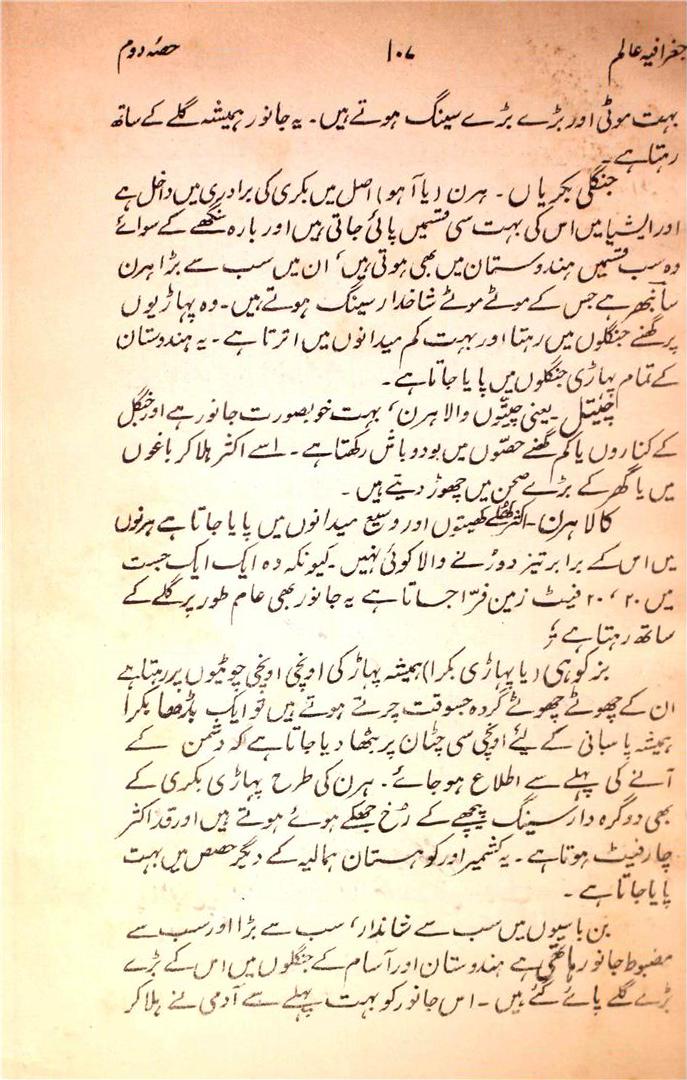 جغرافیہ عالم ۱۰۷ حصہ دوم
بہت موٹی اور بڑے بڑے سینگ ہوتے ہیں۔ یہ جانور ہمیشہ گلے کے ساتھ
رہتا ہے۔
جنگلی بکریاں۔ ہرن (یا آہو) اصل میں بکری کی برادری میں داخل ہے
اور ایشیا میں اس کی بہت سی قسمیں پائی جاتی ہیں اور بارہ سنگھے کے سوائے
وہ سب قسمیں ہندوستان میں بھی ہوتی ہیں، ان میں سب سے بڑا ہرن
سانبھر ہے جس کے موٹے موٹے شاخدار سینگ ہوتے ہیں۔ وہ پہاڑیوں
پر گھنے جنگلوں میں رہتا اور بہت کم میدانوں میں اترتا ہے۔ یہ ہندوستان
کے تمام پہاڑی جنگلوں میں پایا جاتا ہے۔
چیتل۔ یعنی چتیوں والا ہرن، بہت خوبصورت جانور ہے اور جنگل
کے کناروں یا کم گھنے حصوں میں بود و باش رکھتا ہے۔ اسے اکثر ہلا کر باغوں
میں یا گھر کے بڑے صحن میں چھوڑ دیتے ہیں۔
کالا ہرن۔ اکثر کھلے کھیتوں اور وسیع میدانوں میں پایا جاتا ہے ہرنوں
میں اس کے برابر تیز دوڑنے والا کوئی نہیں۔ کیونکہ وہ ایک ایک جست
میں ۲۰، ۲۰ فیٹ زمین فرّا جاتا ہے یہ جانور بھی عام طور پر گلے کے
ساتھ رہتا ہے؛
بز کوہی (یا پہاڑی بکرا) ہمیشہ پہاڑ کی اونچی اونچی چوٹیوں پر رہتا ہے
ان کے چھوٹے چھوٹے گروہ جسوقت چرتے ہوتے ہیں تو ایک بڈھا بکرا
ہمیشہ پاسبانی کے لیئے اونچی سی چٹان پر بٹھا دیا جاتا ہے کہ دشمن کے
آنے کی پہلے سے اطلاع ہو جائے۔ ہرن کی طرح پہاڑی بکری کے
بھی دو گرہ دار سینگ پیچھے کے رُخ جھکے ہوئے ہوتے ہیں اور قد اکثر
چار فیٹ ہوتا ہے۔ یہ کشمیر اور کوہستان ہمالیہ کے دیگر حصص میں بہت
پایا جاتا ہے۔
بن باسیوں میں سب سے شاندار، سب سے بڑا اور سب سے
مضبوط جانور ہاتھی ہے ہندوستان اور آسام کے جنگلوں میں اس کے بڑے
بڑے گلے پائے گئے ہیں۔ اس جانور کو بہت پہلے سے آدمی نے ہلا کر